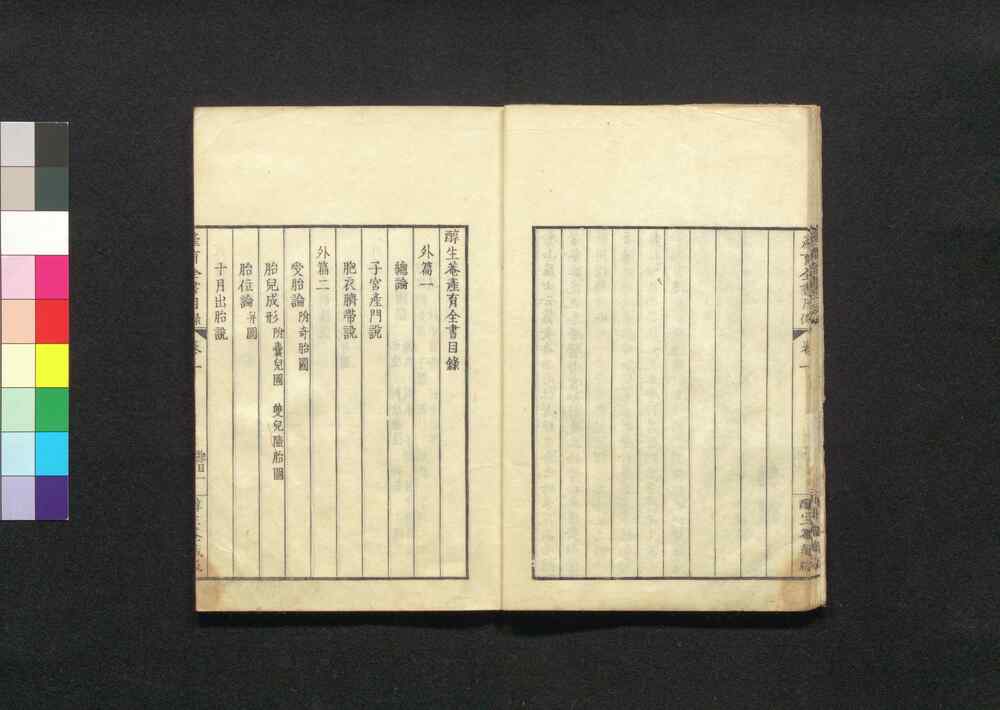 醇生菴產育全書目錄
外篇一
總論
子宮產門說
胞衣臍帶說
外篇二
受胎論附奇胎圖
胎兒成形附囊兒圖 雙兒隔胎圖
胎位論并圖
十月出胎說
卷一